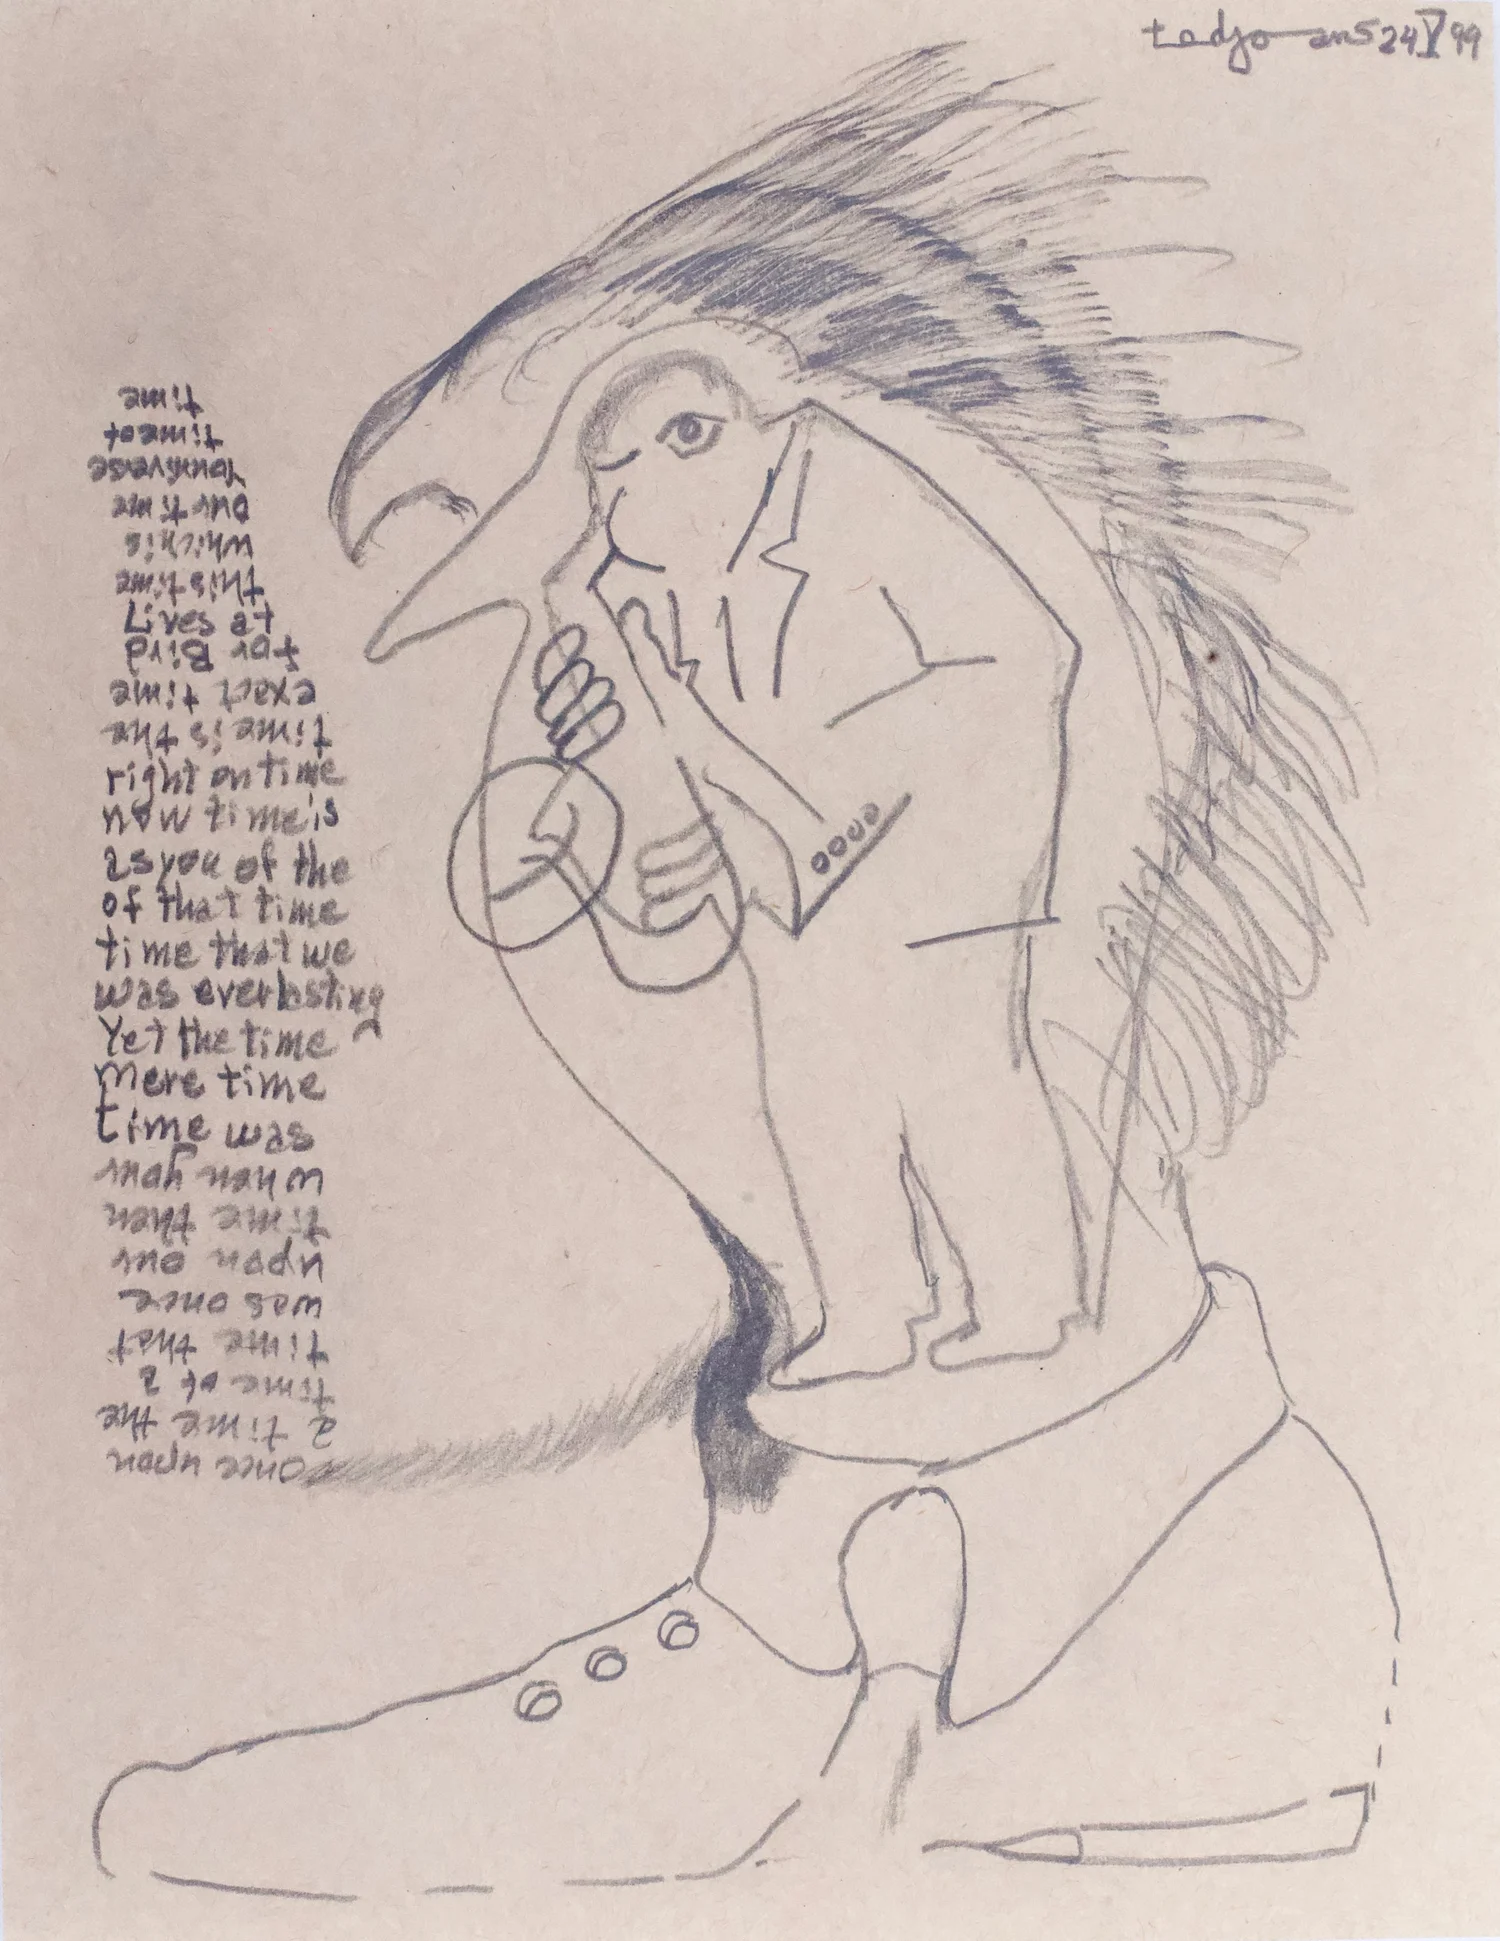 tedjoans 24 V 99
once upon
a time the
time of a
time that
was once
upon our
time then
when your
time was
mere time
Yet the time
was everlasting
time that we
of that time
as you of the
now time is
right on time
time is the
exact time
for Bird
Lives at
this time
which is
our time
Youniverse
time of
time